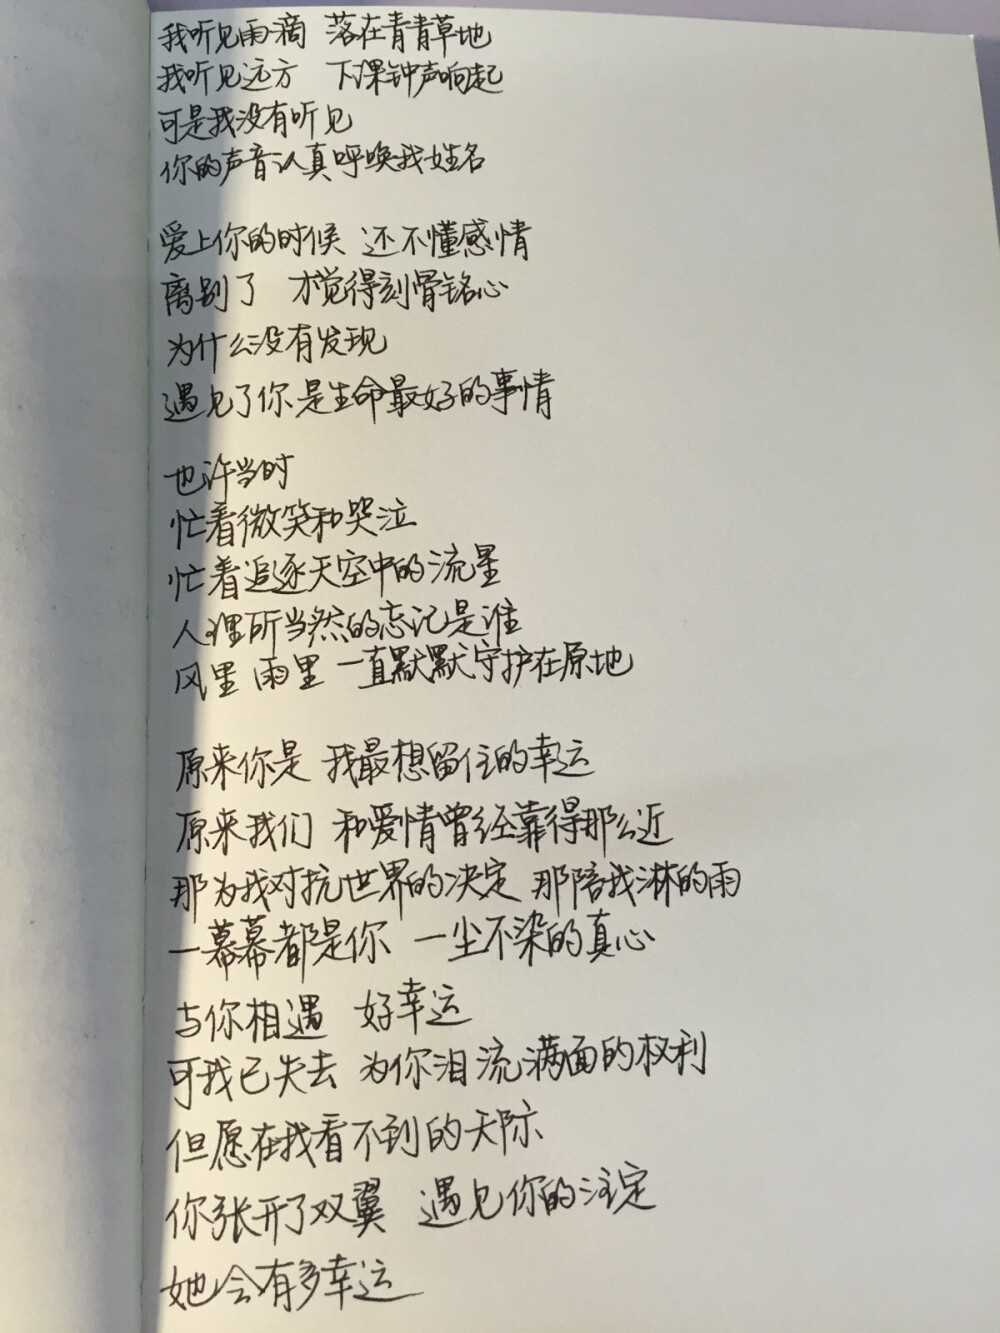 我听见雨滴 落在青青草地
我听见远方 下课钟声响起
可是我没有听见
你的声音认真呼唤我姓名
爱上你的时候 还不懂感情
离别了 才觉得刻骨铭心
为什么没有发现
遇见了你是生命最好的事情
也许当时
忙着微笑和哭泣
忙着追逐天空中的流星
人理所当然的忘记是谁
风里雨里一直默默守护在原地
原来你是 我最想留住的幸运
原来我们 和爱情曾经靠得那么近
那为我对抗世界的决定 那陪我淋的雨
一幕幕都是你 一尘不染的真心
与你相遇 好幸运
可我已失去 为你泪流满面的权利
但愿在我看不到的天际
你张开了双翼 遇见你的注定
她会有多幸运